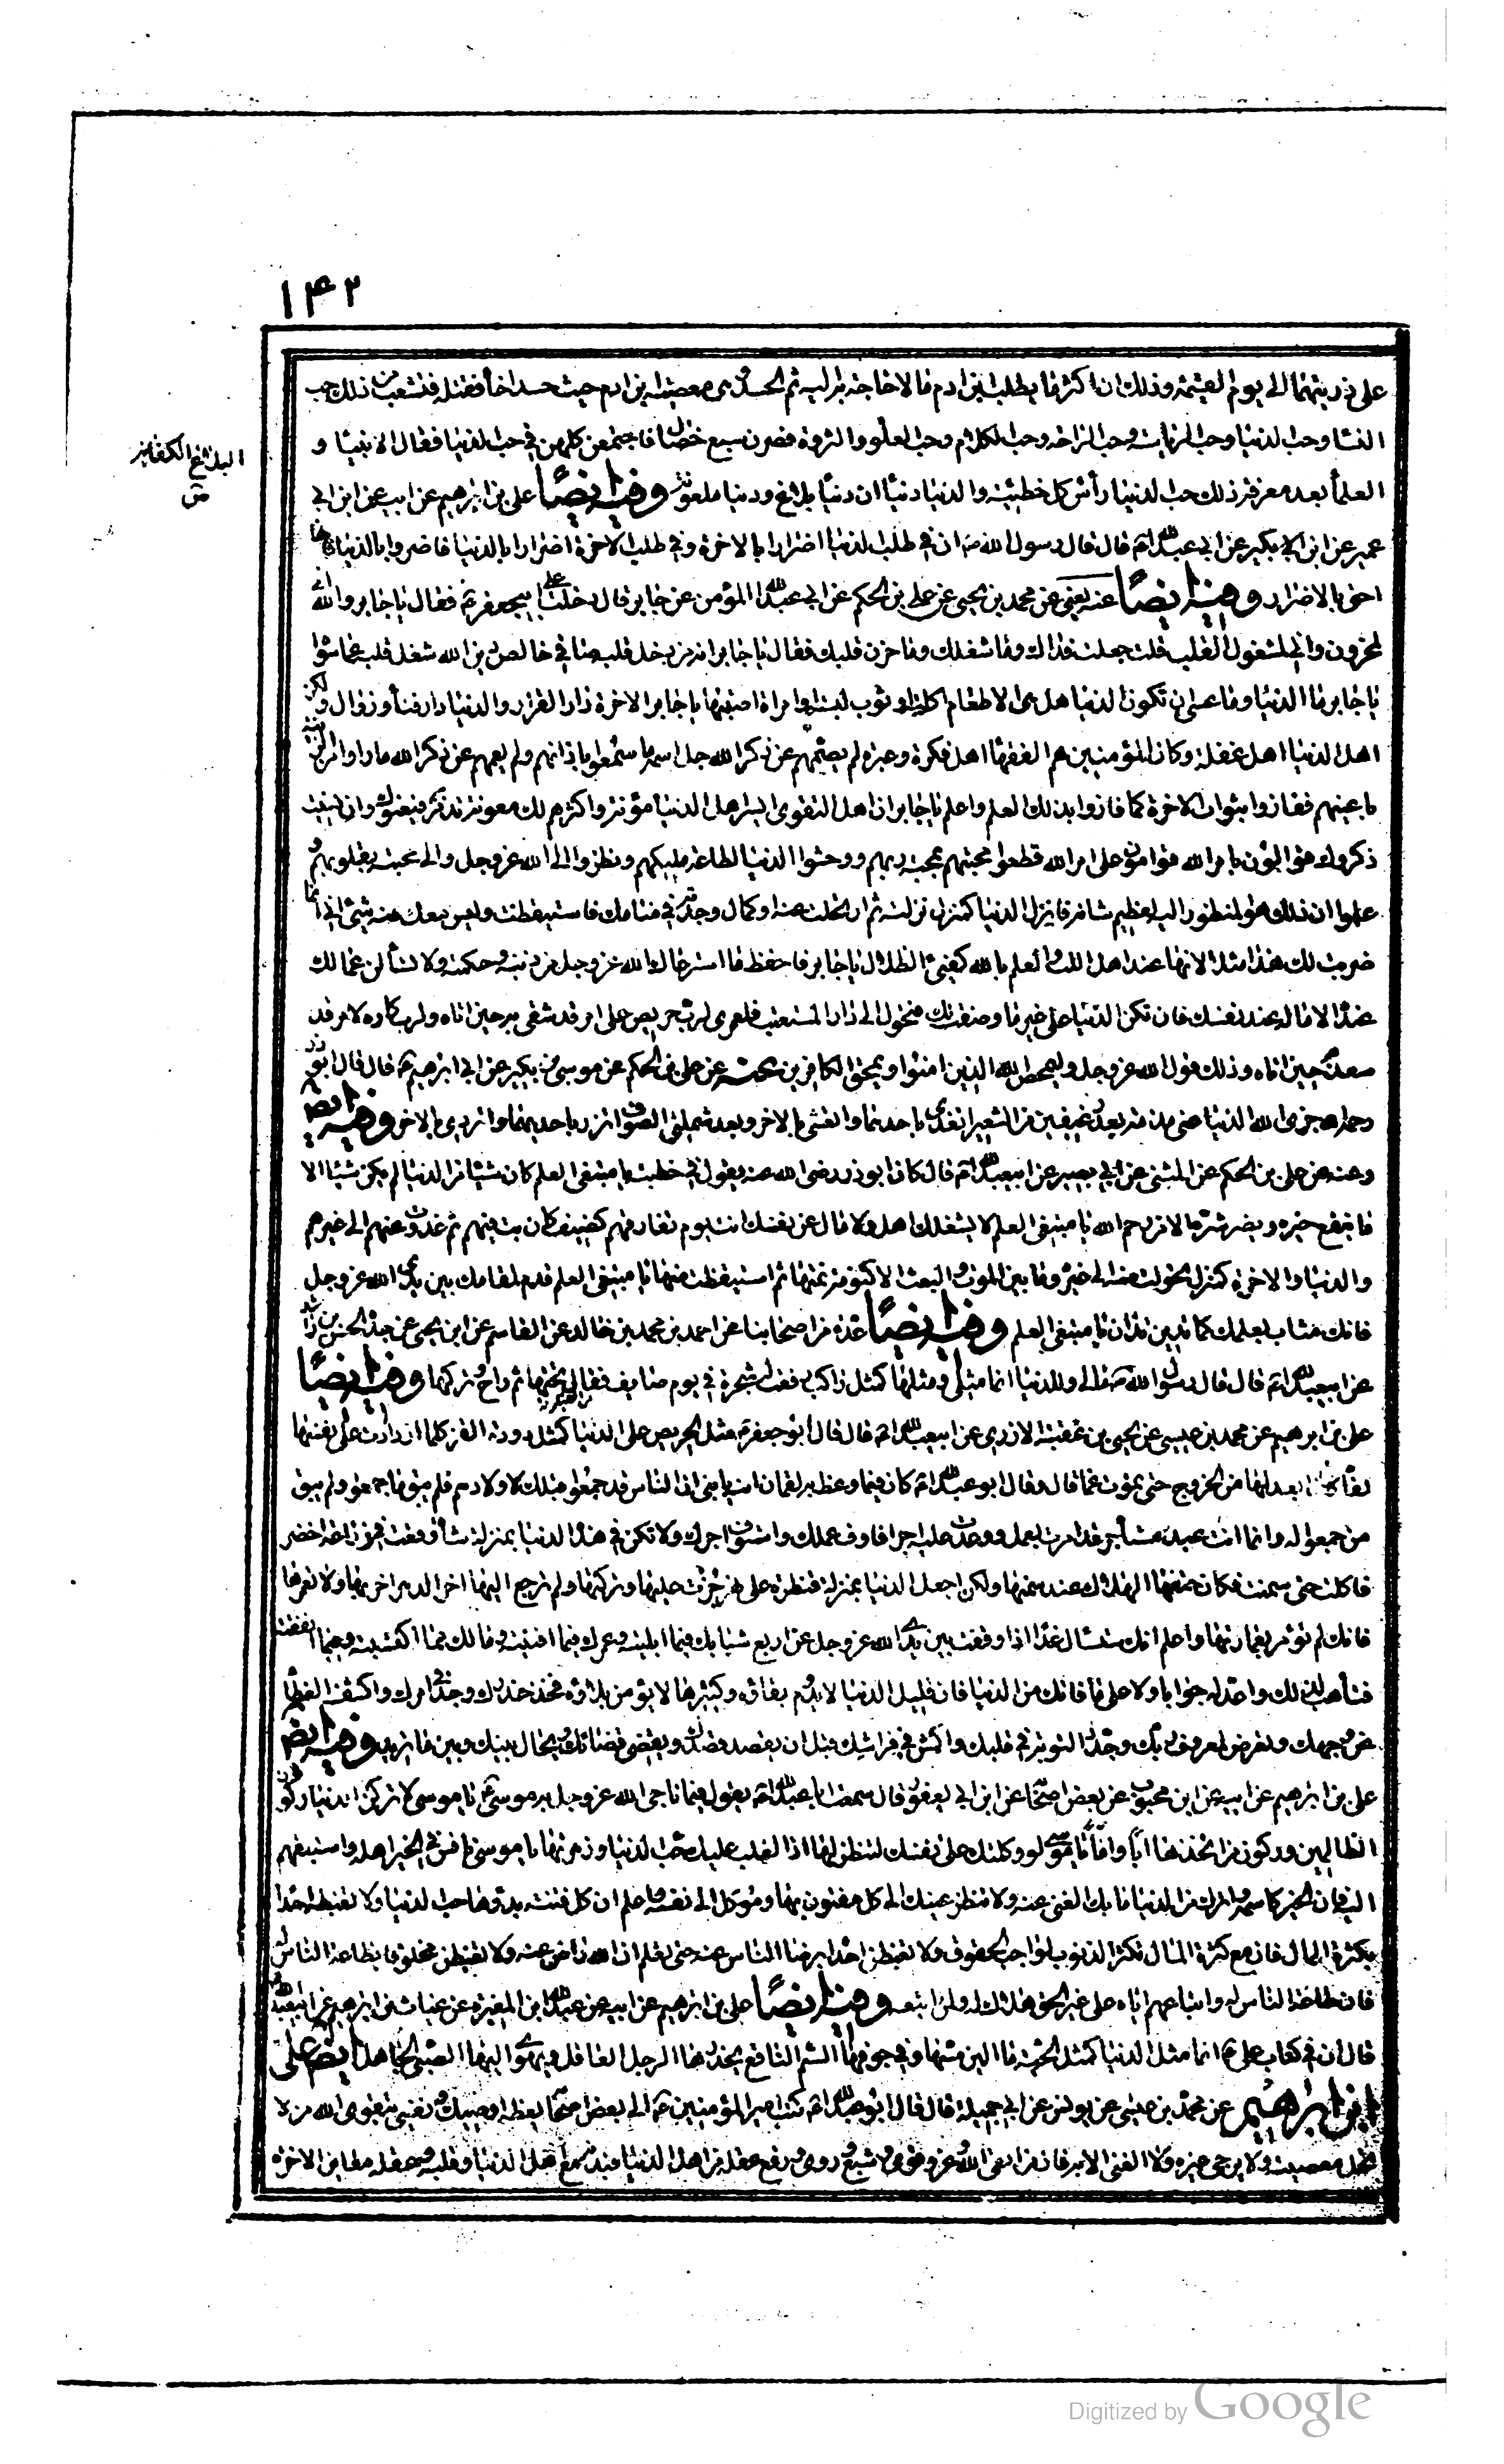 ۱۴۲
على ذريتهما الى يوم القيمة وذلك ان اكثر ما يطلب ابن ادم ما لا حاجة به اليه ثم الحسد وهى معصية ابن ادم حيث حسد اخاه فقتله فتشعب من ذلك حب
النسا وحب الدنيا وحب الرياسة وحب الراحة وحب الكلام وحب العلو والثروة فصرن سبع خصال فاجتمعن كلهن في حب الدنيا فقال الانبيا و
العلمآ بعد معرفة ذلك حب الدنيا رأس كل خطيئة والدنيا دنيا ان دنيا بلاغ ودنيا ملعونة وفيه ايضًا على بن ابرهيم عن ابيه عن ابن ابي
البلاغ الكفاية
ص
عمير عن ابن بكير عن ابي عبد الله ع قال قال رسول الله ص ان في طلب الدنيا اضرارا بالاخرة وفي طلب الاخرة اضرارا بالدنيا فاضروا بالدنيا فانها
احق بالاضرار وفيه ايضًا عنه يعنى عن محمد بن يحيى عن على بن الحكم عن ابي عبد الله المؤمن عن جابر قال دخلت على ابيجعفر ع فقال يا جابر والله انى
لمحزون وانى لمشغول القلب قلت جعلت فداك وما شغلك وما حزن قلبك فقال يا جابر انه من دخل قلبه صافي خالص دين الله شغل قلبه عما سواه
يا جابر ما الدنيا وما عسى ان تكون الدنيا هل هى الا طعام اكلته او ثوب لبسته او امراة اصبتها يا جابر الاخرة دار القرار والدنيا دار فنآ وزوال ولكن
اهل الدنيا اهل غفلة وكان المؤمنين هم الفقها اهل فكرة وعبرة لم يصمهم عن ذكر الله جل اسمه ما سمعوا باذانهم ولم يعمهم عن ذكر الله ما راوا من الزينة
باعينهم ففازوا بثواب الاخرة كما فازوا بذلك العلم واعلم يا جابر ان اهل التقوى ايسر اهل الدنيا مؤنة واكثرهم لك معونة تذكر فيعينونك وان نسيت
ذكروك قوالون بامر الله قوامون على امر الله قطعوا محبتهم بمحبة ربهم ووحشوا الدنيا لطاعة مليكهم ونظروا الى الله عز وجل والى محبته بقلوبهم و
علموا ان ذلك هو المنظور اليه لعظيم شانه فانزل الدنيا كمنزل نزلته ثم ارتحلت عنه او كمال وجدته في منامك فاستيقظت وليس معك منه شئ انى انما
ضربت لك هذا مثلا لانها عند اهل اللب والعلم بالله كفئ الظلال يا جابر فاحفظ ما استرعاك الله عز وجل من دينه وحكمته ولا تسألن عما لك
عنده الا ما له عند نفسك فان تكن الدنيا على غير ما وصفت لك فتحول الى دار المستعتب فلعمرى لرب حريص على امر قد شقى به حين اتاه ولرب كاره لامر قد
سعد به حين اتاه وذلك قول الله عز وجل وليمحص الله الذين امنوا ويمحق الكافرين عنه عن على بن الحكم عن موسى بن بكير عن ابى ابرهيم ع قال قال ابو ذر
رحمه الله جزى الله الدنيا عنى مذمة بعد رغيفين من الشعير اتغدى باحدهما واتعشى بالاخر وبعد شملتى الصوف اتزر باحديهما واتردى بالاخر وفيه ايض
وعنه عن على بن الحكم عن المثنى عن ابى بصير عن ابيعبد الله ع قال كان ابوذر رضى الله عنه يقول في خطبته يا مبتغى العلم كان شيئا من الدنيا لم يكن شيئا الا
ما ينفع خيره ويضر شره الا من رحم الله يا مبتغى العلم لا يشغلك اهل ولا مال عن نفسك انت يوم تفارقهم كضيف كان بت فيهم ثم غدوت عنهم الى غيرهم
والدنيا والاخرة كمنزل تحولت منه الى غيره وما بين الموت والبعث الا كنومة نمتها ثم استيقظت منها يا مبتغى العلم قدم لمقامك بين يدى الله عز وجل
فانك مثاب بعملك كما تدين تدان يا مبتغى العلم وفيه ايضًا عدة من اصحابنا عن احمد بن محمد بن خالد عن القاسم عن ابن يحيى عن جده الحسن بن راشد
عن ابيعبد الله ع قال قال رسول الله ص ما لى وللدنيا انما مثلى ومثلها كمثل راكب رفعت له شجرة في يوم صايف فقال تحتها ثم راح وتركها وفيه ايضًا
على بن ابرهيم عن محمد بن عيسى عن يحيى بن عقبة الازدى عن ابيعبد الله ع قال قال ابوجعفر ع مثل الحريص على الدنيا كمثل دودة القز كلما ازدادت على نفسها
لفا كان ابعد لها من الخروج حتى تموت غما قال وقال ابو عبد الله ع كان فيما وعظ به لقمان ابنه يا بنى ان الناس قد جمعوا قبلك لاولادهم فلم يبق ما جمعوا ولم يبق
من جمعوا له وانما انت عبد مستأجر قد امرت بعمل ووعدت عليه اجرا فاوف عملك واستوف اجرك ولا تكن في هذه الدنيا بمنزلة شاة وقعت في زرع اخضر
فاكلت حتى سمنت فكان حتفها عند سمنها ولكن اجعل الدنيا بمنزلة قنطرة على نهر جزت عليها وتركتها ولم ترجع اليها اخر الدهر اخربها ولا تعمرها
فانك لم تؤمر بعمارتها واعلم انك ستسال غدا اذا وقفت بين يدى الله عز وجل عن اربع شبابك فيما ابليته وعمرك فيما افنيته ومالك مما اكتسبته وفيما انفقته
فتأهب لذلك واعد له جوابا ولا تاس على ما فاتك من الدنيا فان قليل الدنيا لا يدوم بقاؤه وكثيرها لا يؤمن بلاؤه فخذ حذرك وجد في امرك واكشف الغطآ
عن وجهك وتعرض لمعروف ربك وجدد التوبة في قلبك واكمش في فراغك قبل ان يقصد قصدك ويقضى قضاؤك ويحال بينك وبين ما تريد وفيه ايض
على بن ابرهيم عن ابيه عن ابن محبوب عن بعض اصحابه عن ابن ابي يعفور قال سمعت ابا عبد الله ع يقول فيما ناجى الله عز وجل به موسى ع يا موسى لا تركن الى الدنيا ركون
الظالمين وركون من اتخذها ابا واما يا موسى لو وكلتك على نفسك لتنظر لها اذا لغلب عليك حب الدنيا وزهرتها يا موسى نافس في الخير اهله واستبقهم
اليه فان الخير كاسمه واترك من الدنيا ما بك الغنى عنه ولا تنظر عينك الى كل مفتون بها وموكل الى نفسه واعلم ان كل فتنة بدؤها حب الدنيا ولا تغبط احدا
بكثرة المال فان مع كثرة المال تكثر الذنوب لواجب الحقوق ولا تغبطن احدا برضا الناس عنه حتى تعلم ان الله راض عنه ولا تغبطن مخلوقا بطاعة الناس له
فان طاعة الناس له واتباعهم اياه على غير الحق هلاك له ولمن اتبعه وفيه ايضًا على بن ابرهيم عن ابيه عن عبد الله ابن المغيرة عن غياث بن ابرهيم عن ابيعبد الله
قال ان في كتاب على ع انما مثل الدنيا كمثل الحية ما الين مسها وفي جوفها السم الناقع يحذرها الرجل العاقل ويهوى اليها الصبى الجاهل ايض على
ابن ابرهيم عن محمد بن عيسى عن يونس عن ابى جميلة قال قال ابو عبد الله ع كتب امير المؤمنين ع الى بعض اصحابه يعظه اوصيك ونفسى بتقوى الله من لا
تحل معصيته ولا يرجى غيره ولا الغنى الا به فان من اتقى الله عز وقوى وشبع وروى ورفع عقله من اهل الدنيا فبدنه مع اهل الدنيا وقلبه وعقله معاين الاخرة
Digitized by Google